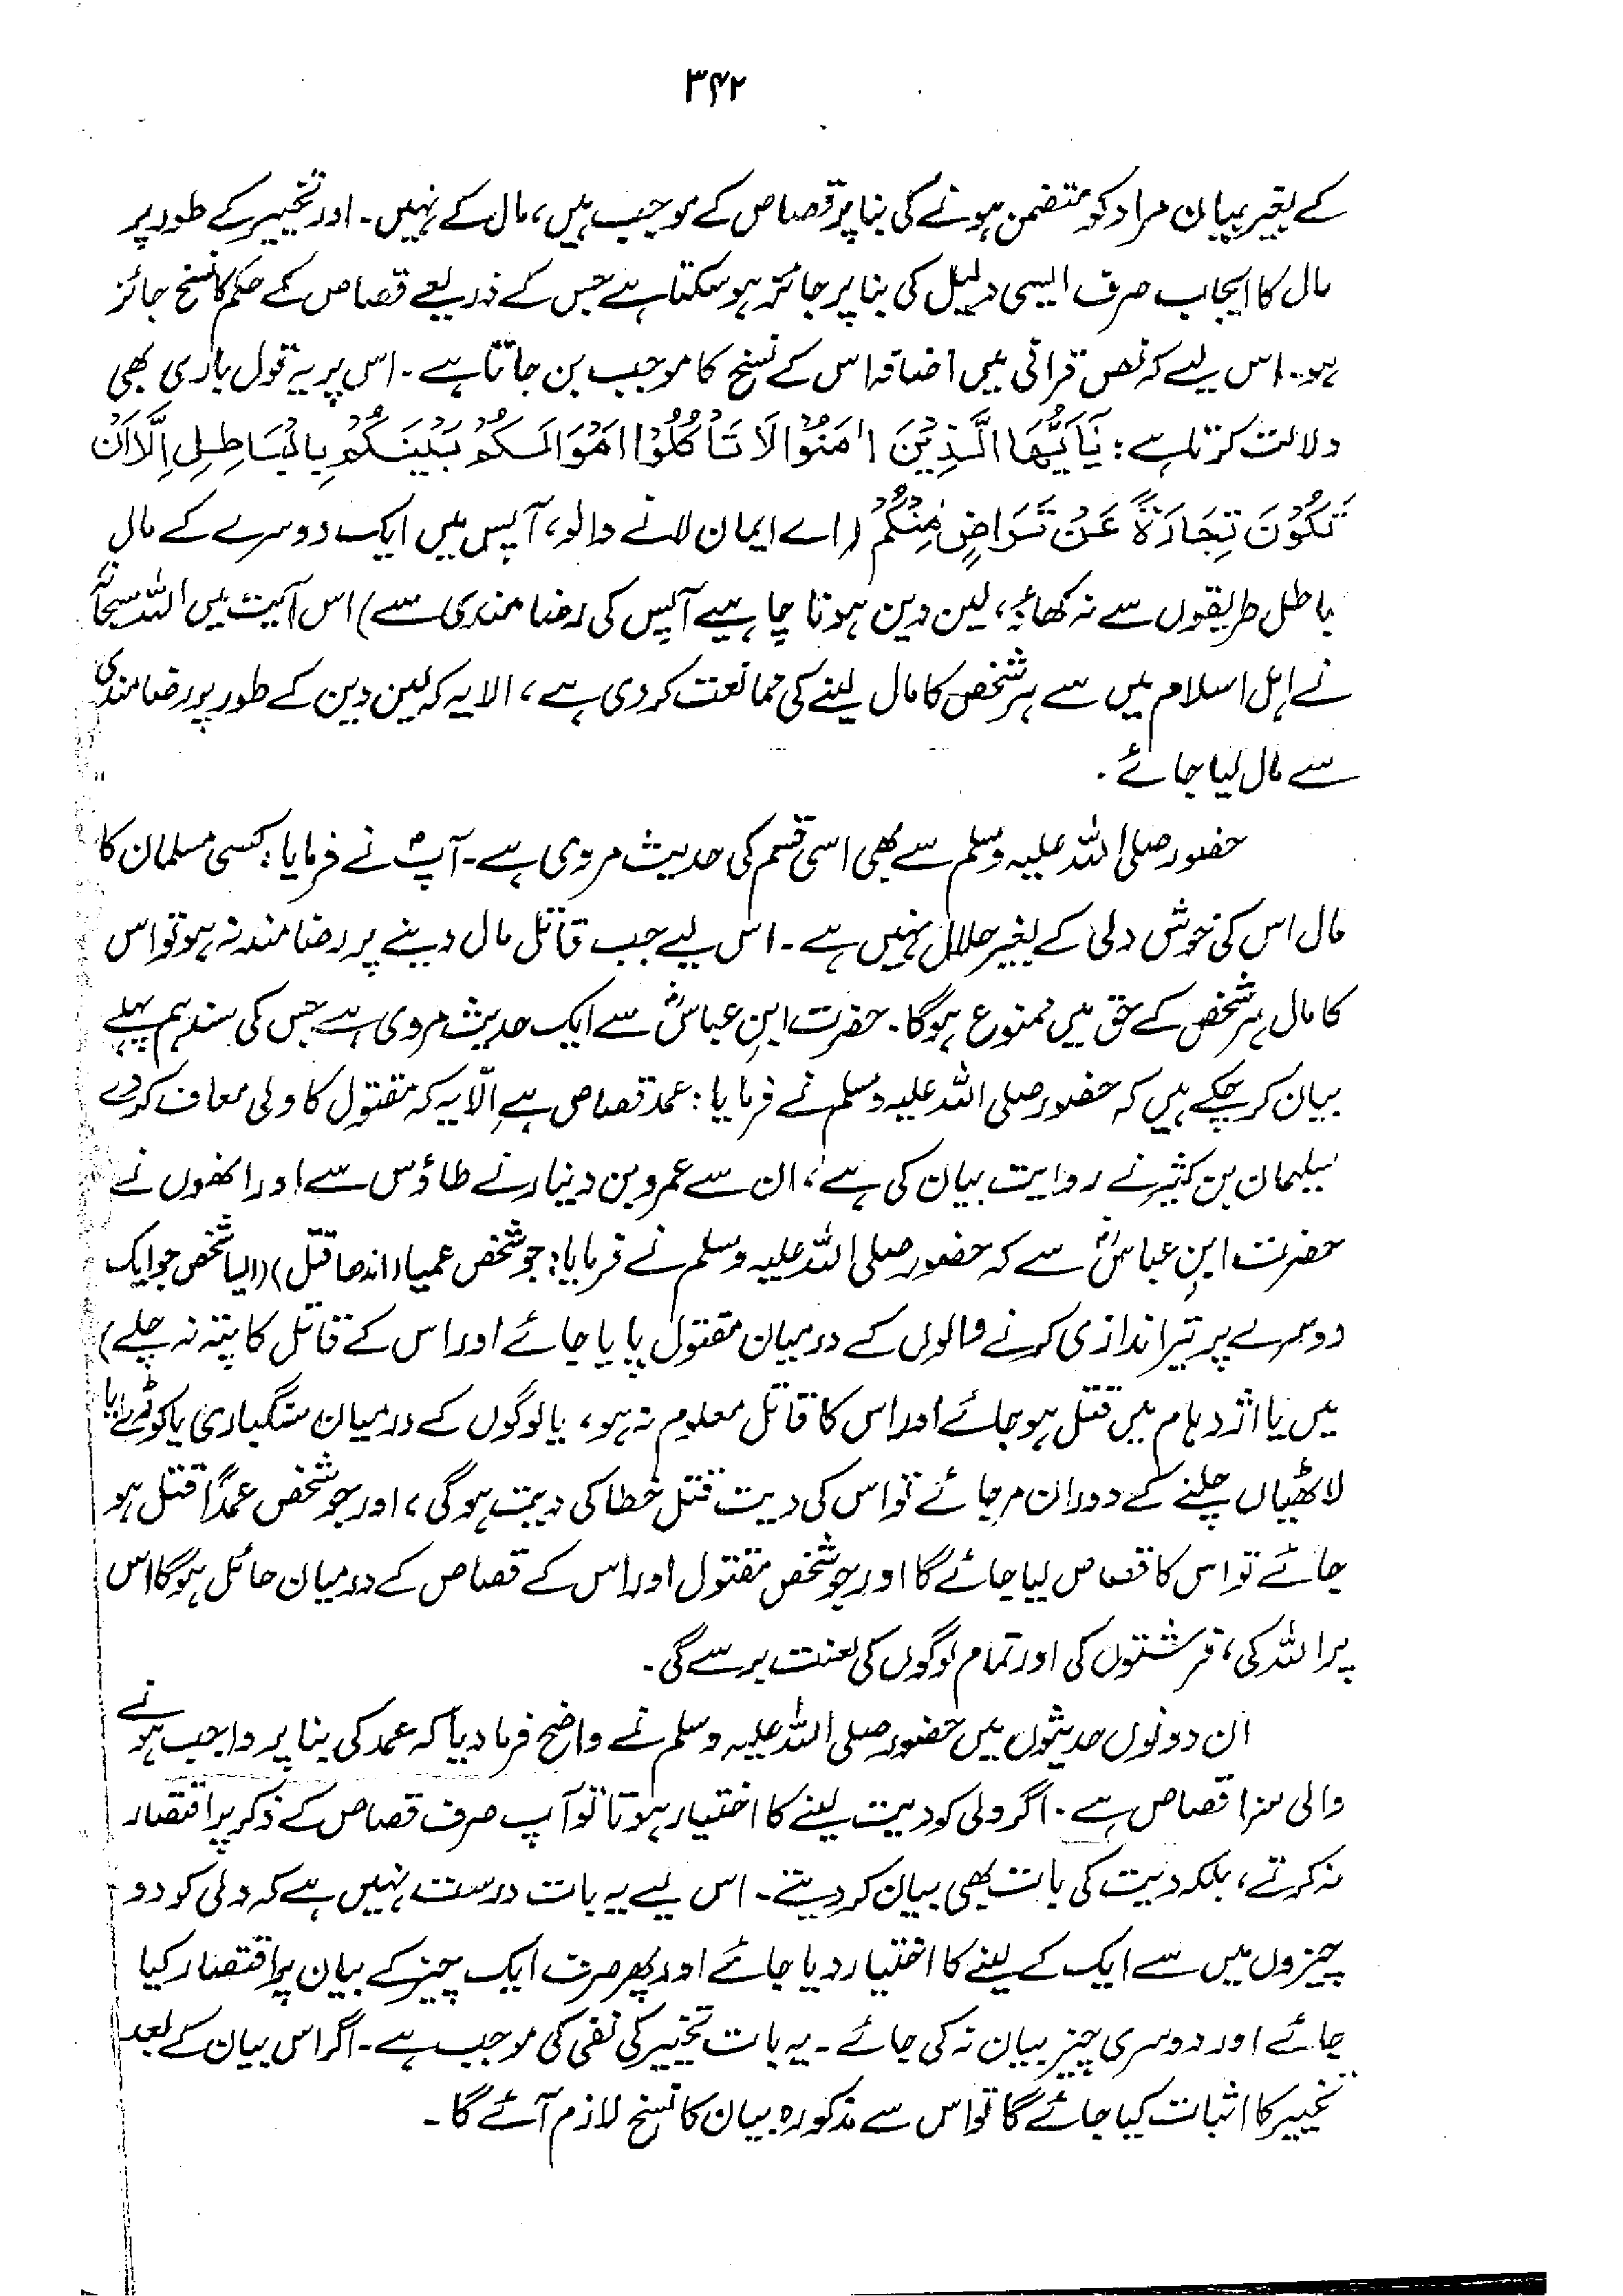 ۳۴۲
کے بغیر بیان مراد کو متضمن ہونے کی بنا پر قصاص کے موجب ہیں، مال کے نہیں۔ اور تخییر کے طور پر
مال کا ایجاب صرف ایسی دلیل کی بنا پر جائز ہو سکتا ہے جس کے ذریعے قصاص کے حکم کا نسخ جائز
ہو۔ اس لیے کہ نص قرآنی میں اضافہ اس کے نسخ کا موجب بن جاتا ہے۔ اس پر یہ قول باری بھی
دلالت کرتا ہے: يَٰٓأَيُّهَا الَّذِيْنَ اٰمَنُوْا لَا تَأْكُلُوْا اَمْوَالَكُمْ بَيْنَكُمْ بِالْبَاطِلِ اِلَّا اَنْ
تَكُوْنَ تِجَارَةً عَنْ تَرَاضٍ مِّنْكُمْ (اے ایمان لانے والو، آپس میں ایک دوسرے کے مال
باطل طریقوں سے نہ کھاؤ، لین دین ہونا چاہیے آپس کی رضامندی سے) اس آیت میں اللہ سبحانہٗ
نے اہل اسلام میں سے ہر شخص کا مال لینے کی ممانعت کر دی ہے، الا یہ کہ لین دین کے طور پر رضامندی
سے مال لیا جائے۔
حضور صلی اللہ علیہ وسلم سے بھی اسی قسم کی حدیث مروی ہے۔ آپؐ نے فرمایا: کسی مسلمان کا
مال اس کی خوش دلی کے بغیر حلال نہیں ہے۔ اس لیے جب قاتل مال دینے پر رضامند نہ ہو تو اس
کا مال ہر شخص کے حق میں ممنوع ہوگا۔ حضرت ابن عباسؓ سے ایک حدیث مروی ہے جس کی سند ہم پہلے
بیان کر چکے ہیں کہ حضور صلی اللہ علیہ وسلم نے فرمایا: عمد قصاص ہے اِلّا یہ کہ مقتول کا ولی معاف کر دے
سلیمان بن کثیر نے روایت بیان کی ہے، ان سے عمرو بن دینار نے طاؤس سے اور انھوں نے
حضرت ابن عباسؓ سے کہ حضور صلی اللہ علیہ وسلم نے فرمایا: جو شخص عمیا (اندھا قتل) (ایسا شخص جو ایک
دوسرے پر تیر اندازی کرنے والوں کے درمیان مقتول پایا جائے اور اس کے قاتل کا پتہ نہ چلے)
میں یا اژدہام میں قتل ہو جائے اور اس کا قاتل معلوم نہ ہو، یا لوگوں کے درمیان سنگباری یا کوڑے یا
لاٹھیاں چلنے کے دوران مر جائے تو اس کی دیت قتل خطا کی دیت ہوگی، اور جو شخص عمداً قتل ہو
جائے تو اس کا قصاص لیا جائے گا اور جو شخص مقتول اور اس کے قصاص کے درمیان حائل ہوگا اس
پر اللہ کی، فرشتوں کی اور تمام لوگوں کی لعنت برسے گی۔
ان دونوں حدیثوں میں حضور صلی اللہ علیہ وسلم نے واضح فرما دیا کہ عمد کی بنا پر واجب ہونے
والی سزا قصاص ہے۔ اگر ولی کو دیت لینے کا اختیار ہوتا تو آپ صرف قصاص کے ذکر پر اقتصار
نہ کرتے، بلکہ دیت کی بات بھی بیان کر دیتے۔ اس لیے یہ بات درست نہیں ہے کہ ولی کو دو
چیزوں میں سے ایک کے لینے کا اختیار دیا جائے اور پھر صرف ایک چیز کے بیان پر اقتصار کیا
جائے اور دوسری چیز بیان نہ کی جائے۔ یہ بات تخییر کی نفی کی موجب ہے۔ اگر اس بیان کے بعد
تخییر کا اثبات کیا جائے گا تو اس سے مذکورہ بیان کا نسخ لازم آئے گا۔